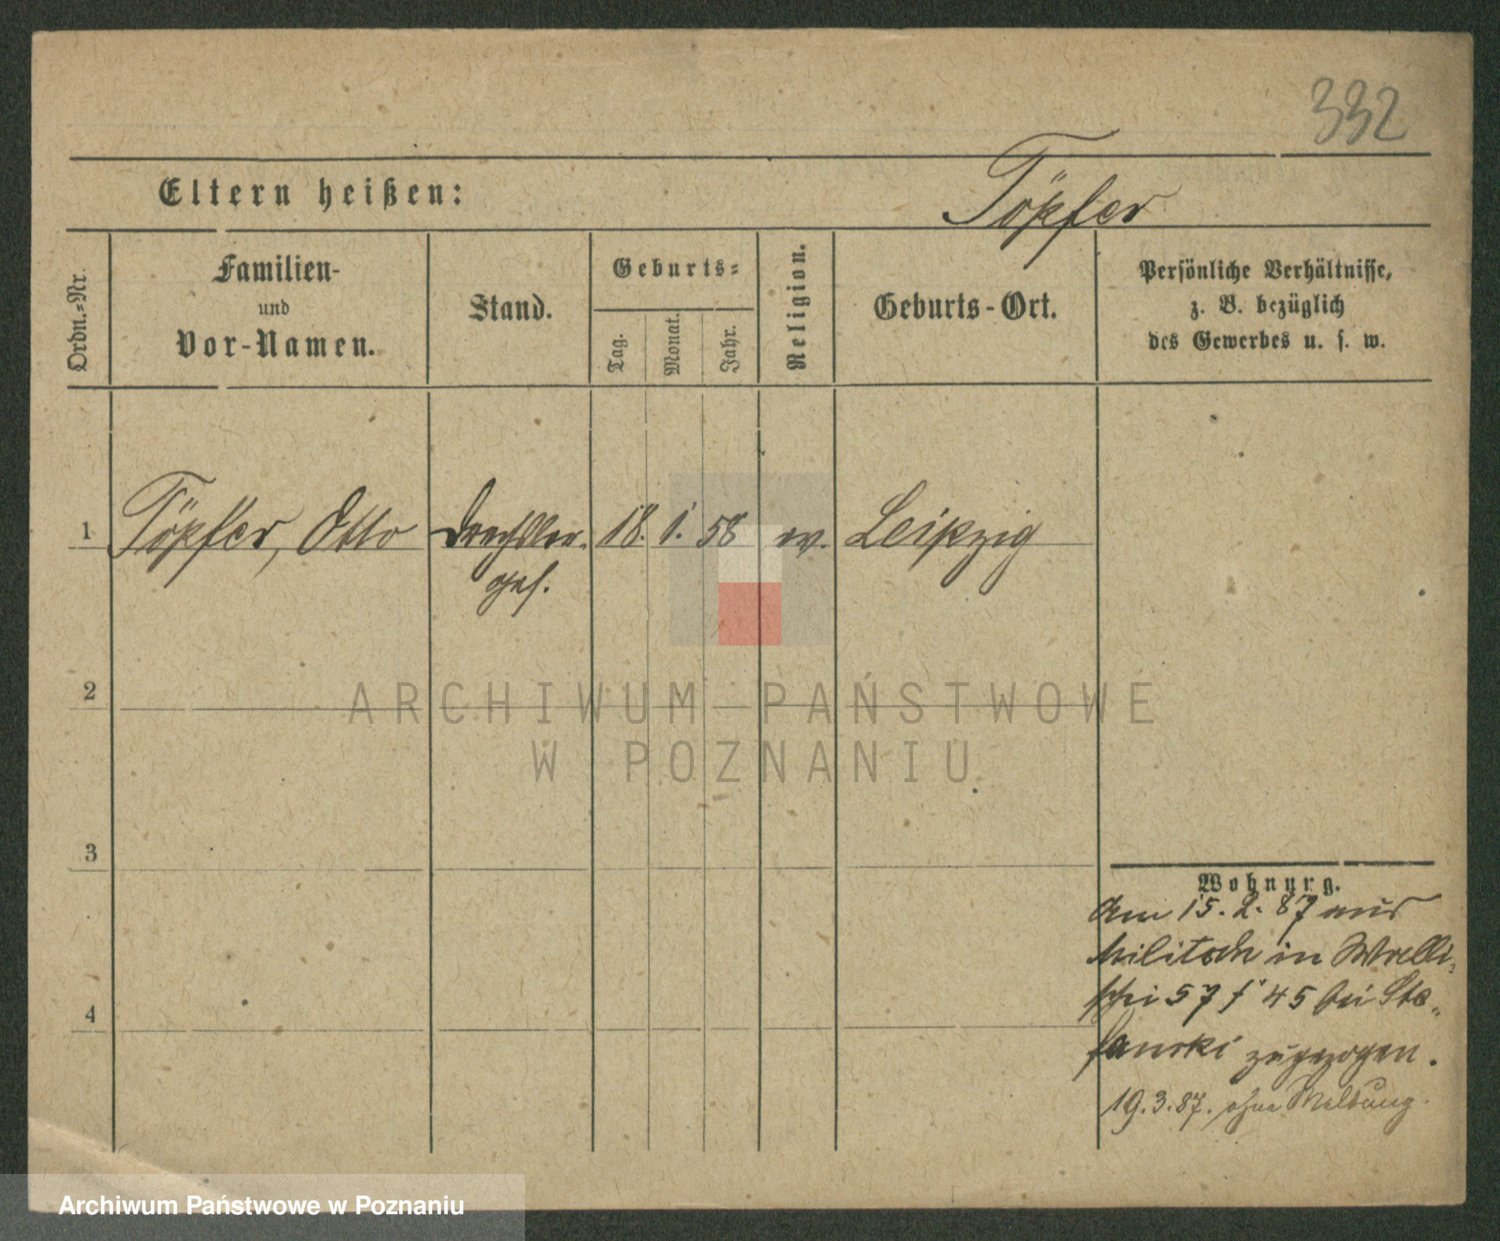 332
Eltern heißen:
Töpfer
Ordn.=Nr.
Familien-
und
Vor-Namen.
Stand.
Geburts=
Tag.
Monat.
Jahr.
Religion.
Geburts-Ort.
Persönliche Verhältnisse,
z. B. bezüglich
des Gewerbes u. s. w.
1 Töpfer, Otto Drechsler- 18. 1. 58 ev. Leipzig
ges.
2
ARCHIWUM PAŃSTWOWE
W POZNANIU
3
Wohnung.
Am 15. 2. 87 aus
Militsch in Walli-
schei 57 f 45 bei Ste„
fanski zugezogen.
19. 3. 87. ohne Meldung.
4
Archiwum Państwowe w Poznaniu